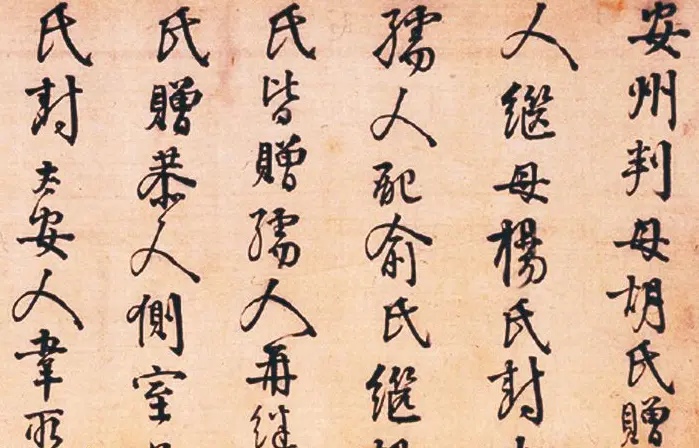 安州判母胡氏贈
人繼母楊氏封
孺人配俞氏繼
氏皆贈孺人再繼
氏贈恭人側室
氏封太安人韋所